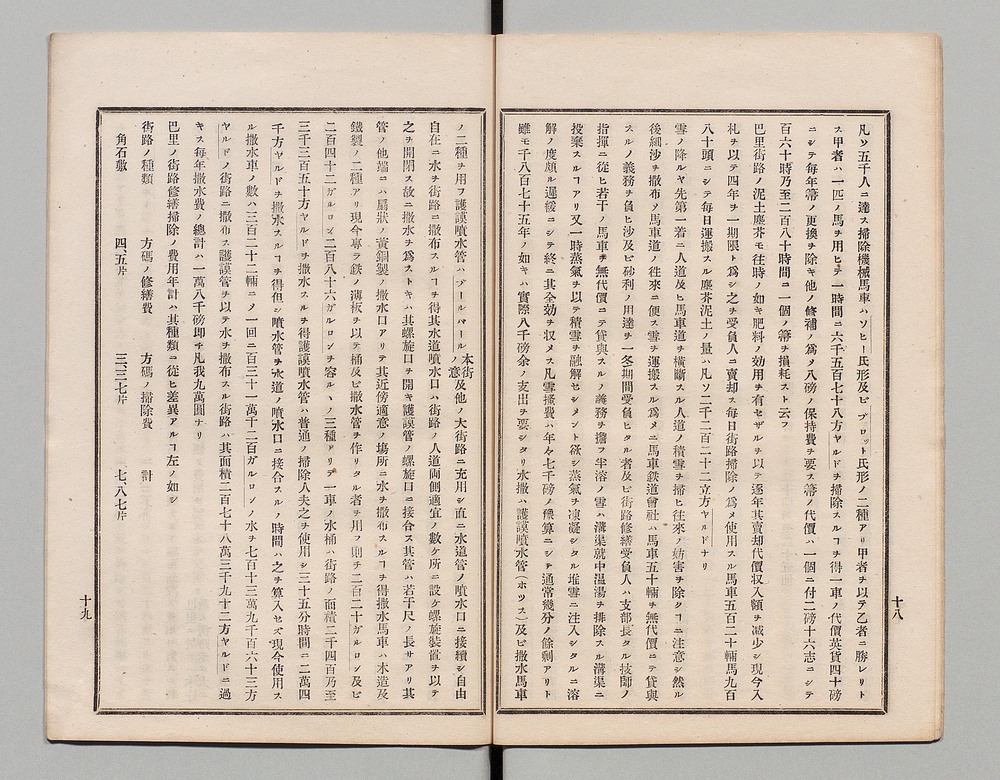 凡ソ五千人ニ達ス掃除機械馬車ハソヒー氏形及ビブロット氏形ノ二種アリ甲者ヲ以テ乙者ニ勝レリト
ス甲者ハ一匹ノ馬ヲ用ヒテ一時間ニ六千五百七十八方ヤルドヲ掃除スルヿヲ得一車ノ代價英貨四十磅
ニシテ每年箒ノ更換ヲ除キ他ノ修補ノ爲メ八磅ノ保持費ヲ要ス箒ノ代價ハ一個ニ付二磅十六志ニシテ
百六十時乃至二百八十時間ニ一個ノ箒ヲ損耗スト云フ
巴里街路ノ泥土塵芥モ往時ノ如キ肥料ノ効用ヲ有セザルヲ以テ逐年其賣却代價収入額ヲ減少シ現今入
札ヲ以テ四年ヲ一期限ト爲シ之ヲ受負人ニ賣却ス每日街路掃除ノ爲メ使用スル馬車五百二十輛馬九百
八十頭ニシテ每日運搬スル塵芥泥土ノ量ハ凡ソ二千二百二十二立方ヤルドナリ
雪ノ降ルヤ先第一着ニ人道及ヒ馬車道ヲ橫斷スル人道ノ積雪ヲ掃ヒ往來ノ妨害ヲ除クヿニ注意シ然ル
後細沙ヲ撒布メ馬車道ノ徃來ニ便ス雪ヲ運搬スル爲メニ馬車鉄道會社ハ馬車五十輛ヲ無代價ニテ貸與
スルノ義務ヲ負ヒ沙及ビ砂利ノ用達ヲ一冬期間受負ヒタル者及ビ街路修繕受負人ハ支部長タル技師ノ
指揮ニ從ヒ若干ノ馬車ヲ無代價ニテ貸與スルノ義務ヲ擔フ半溶ノ雪ハ溝渠就中温湯ヲ排除スル溝渠ニ
投棄スルヿアリ又一時蒸氣ヲ以テ積雪ヲ融解セシメント欲シ蒸氣ヲ凍凝シタル堆雪ニ注入シタルニ溶
解ノ度頗ル遲緩ニシテ終ニ其全効ヲ収メス凡雪掻費ハ年々七千磅ノ豫算ニシテ通常幾分ノ餘剩アリト
雖モ千八百七十五年ノ如キハ實際八千磅余ノ支出ヲ要シタリ水撒ハ護謨噴水管(ホツス)及ビ撒水馬車
十八
ノ二種ヲ用フ護謨噴水管ハブールバール本街ノ意及他ノ大街路ニ充用シ直ニ水道管ノ噴水口ニ接續シ自由
自在ニ水ヲ街路ニ撒布スルヿヲ得其水道噴水口ハ街路ノ人道両側適宜ノ數ケ所ニ設ケ螺旋裝置ヲ以テ
之ヲ開閉ス故ニ撒水ヲ爲ストキハ其螺旋口ヲ開キ護謨管ノ螺旋口ニ接合ス其管ハ若干尺ノ長サアリ其
管ノ他端ニハ扇狀ノ黃銅製ノ撒水口アリテ其近傍適意ノ塲所ニ水ヲ撒布スルヿヲ得撒水馬車ハ木造及
鐵製ノ二種アリ現今專ラ鉄ノ薄板ヲ以テ桶及ビ撒水管ヲ作リタル者ヲ用フ則チ二百二十ガルロン及ビ
二百四十二ガルロン二百八十六ガルロンヲ容ルヽノ三種アリテ一車ノ水桶ハ街路ノ面積二千四百乃至
三千三百五十方ヤルドヲ撒水スルヲ得護謨噴水管ハ普通ノ掃除人夫之ヲ使用シ三十五分時間ニ二萬四
千方ヤルドヲ撒水スルヿヲ得但シ噴水管ヲ水道ノ噴水口ニ接合スルノ時間ハ之ヲ算入セズ現今使用ス
ル撒水車ノ數ハ三百二十二輛ニメ一回ニ百三十一萬千二百ガルロンノ水ヲ七百十三萬九千百六十三方
ヤルドノ街路ニ撒布ス護謨管ヲ以テ水ヲ撒布スル街路ハ其面積二百七十八萬三千九十二方ヤルドニ過
キス每年撒水費ノ總計ハ一萬八千磅即チ凡我九萬圓ナリ
巴里ノ街路修繕掃除ノ費用年計ハ其種類ニ從ヒ差異アルヿ左ノ如シ
街路ノ種類 方碼ノ修繕費 方碼ノ掃除費 計
角石敷 四、五片 三、三七片 七、八七片
十九